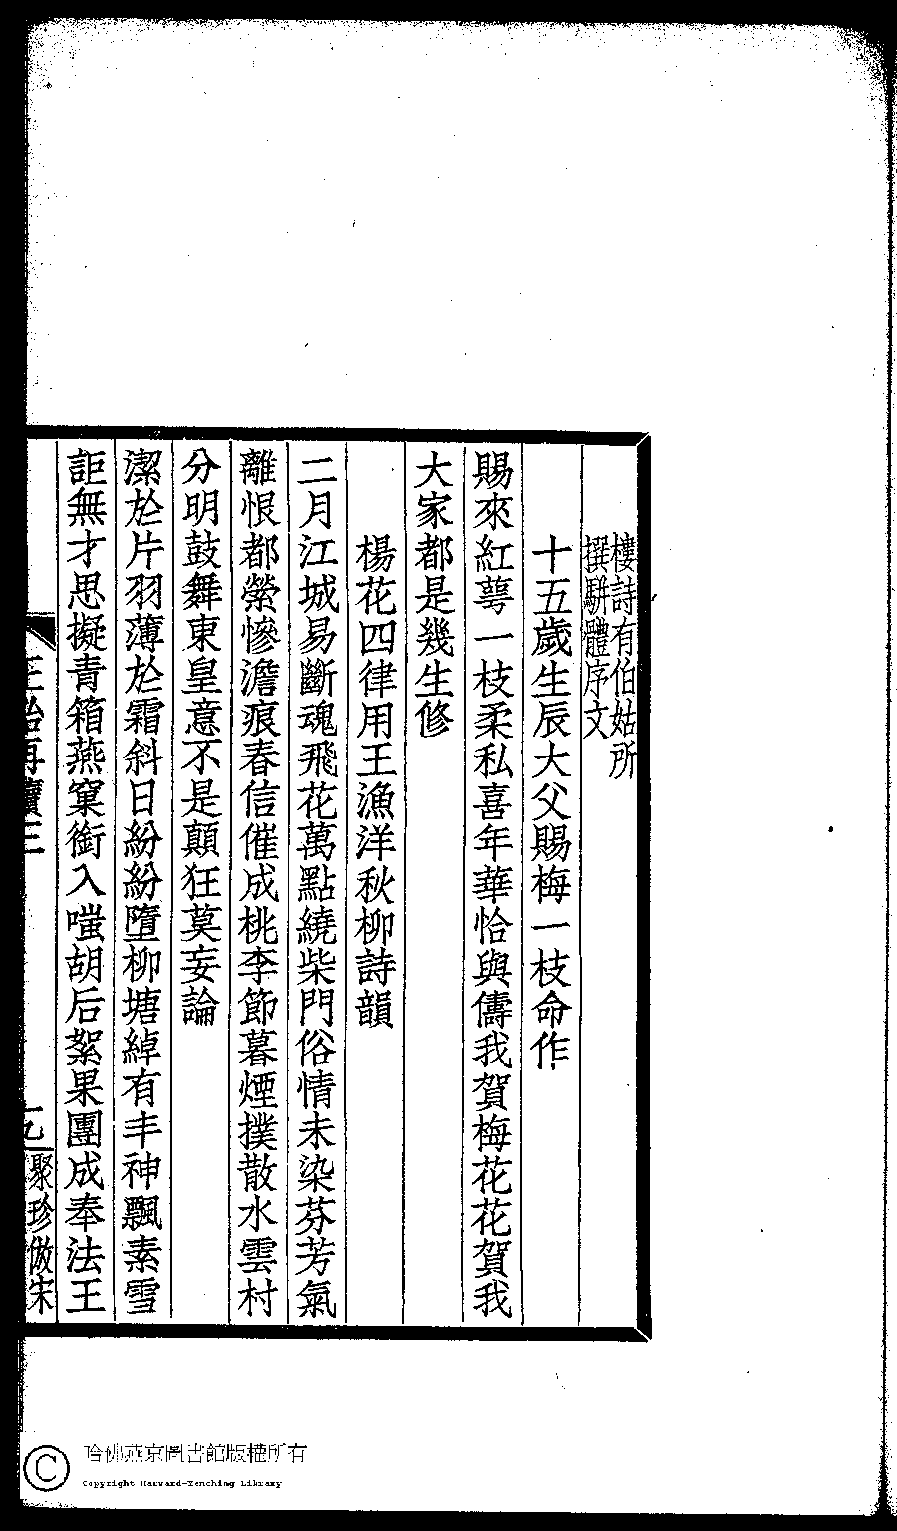 樓詩有伯姑所
撰駢體序文
十五歲生辰大父賜梅一枝命作
賜來紅萼一枝柔私喜年華恰與儔我賀梅花花賀我
大家都是幾生修
楊花四律用王漁洋秋柳詩韻
二月江城易斷魂飛花萬點繞柴門俗情未染芬芳氣
離恨都縈慘澹痕春信催成桃李節暮煙撲散水雲村
分明鼓舞東皇意不是顛狂莫妄論
潔於片羽薄於霜斜日紛紛墮柳塘綽有丰神飄素雪
詎無才思擬青箱燕窠銜入嗤胡后絮果團成奉法王
聚珍倣宋
哈佛燕京圖書館版權所有
Copyright Harvard-Yenching Library